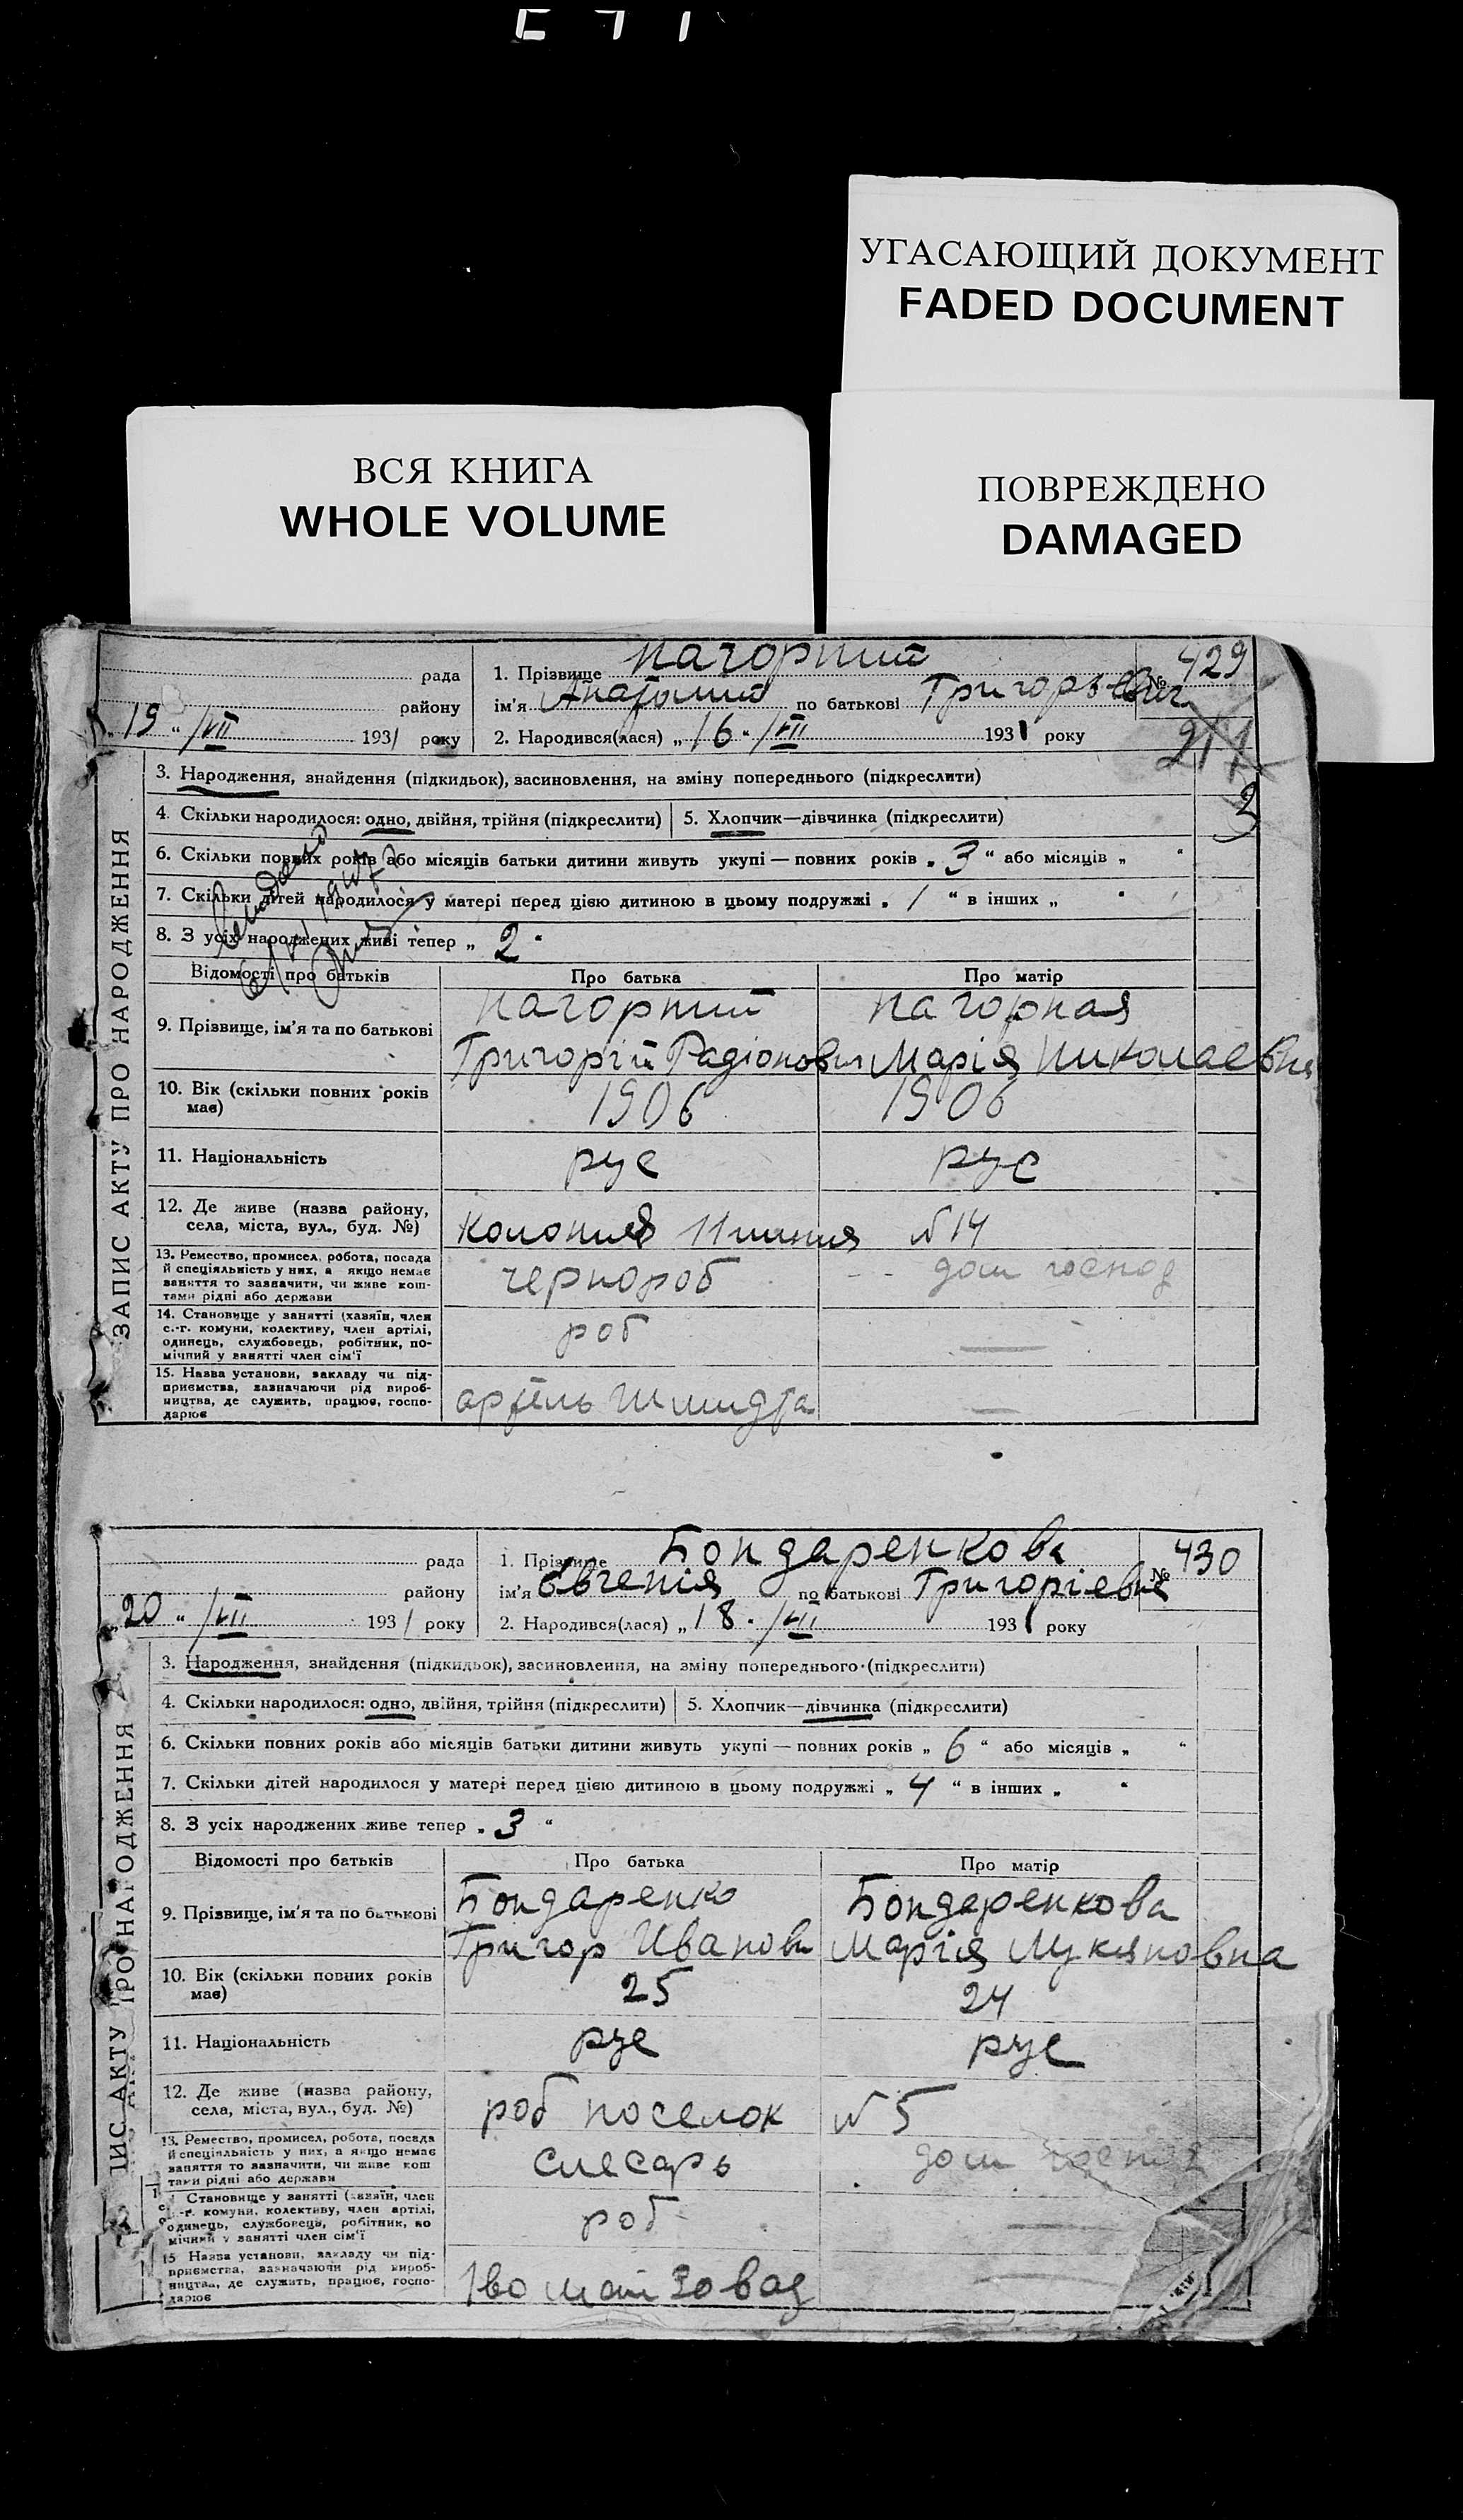 УГАСАЮЩИЙ ДОКУМЕНТ
FADED DOCUMENT
ВСЯ КНИГА
WHOLE VOLUME
ПОВРЕЖДЕНО
DAMAGED
ЗАПИС АКТУ ПРО НАРОДЖЕННЯ
рада
району
„19“ /VII 1931 року
1. Прізвище Нагорний
№ 429
ім'я Анатолий по батькові Григорьевич
2. Народився(лася) „16“ /VII 1931 року
3. Народження, знайдення (підкидьок), засиновлення, на зміну попереднього (підкреслити)
4. Скільки народилося: одно, двійня, трійня (підкреслити) 5. Хлопчик—дівчинка (підкреслити)
6. Скільки повних років або місяців батьки дитини живуть укупі — повних років „3“ або місяців „ “
7. Скільки дітей народилося у матері перед цією дитиною в цьому подружжі „1“ в інших „ “
8. З усіх народжених живі тепер „2“
Відомості про батьків Про батька Про матір
9. Прізвище, ім'я та по батькові
Нагорний Нагорная
Григорій Радіонович Марія Николаевна
10. Вік (скільки повних років має) 1906 1906
11. Національність рус рус
12. Де живе (назва району, села, міста, вул., буд. №) Колония 11 линия №14
13. Ремество, промисел, робота, посада й спеціяльність у них, а якщо немає заняття то зазначити, чи живе коштами рідні або держави
чернороб дом господ
14. Становище у занятті (хазяїн, член с.-г. комуни, колективу, член артілі, одинець, службовець, робітник, помічний у занятті член сім'ї
роб —
15. Назва установи, закладу чи підприємства, зазначаючи рід виробництва, де служить, працює, господарює
артіль Шмидта —
рада
району
„20“ /VII 1931 року
1. Прізвище Бондаренкова
№ 430
ім'я Євгенія по батькові Григоріевна
2. Народився(лася) „18“ /VII 1931 року
3. Народження, знайдення (підкидьок), засиновлення, на зміну попереднього (підкреслити)
4. Скільки народилося: одно, двійня, трійня (підкреслити) 5. Хлопчик—дівчинка (підкреслити)
6. Скільки повних років або місяців батьки дитини живуть укупі — повних років „6“ або місяців „ “
7. Скільки дітей народилося у матері перед цією дитиною в цьому подружжі „4“ в інших „ “
8. З усіх народжених живе тепер „3“
Відомості про батьків Про батька Про матір
9. Прізвище, ім'я та по батькові
Бондаренко Бондаренкова
Григор Иванови Марія Лукяновна
10. Вік (скільки повних років має) 25 24
11. Національність рус рус
12. Де живе (назва району, села, міста, вул., буд. №) роб поселок №5
13. Ремество, промисел, робота, посада й спеціяльність у них, а якщо немає заняття то зазначити, чи живе коштами рідні або держави
слесарь дом господ
Становище у занятті (хазяїн, член с.-г. комуни, колективу, член артілі, одинець, службовець, робітник, помічний у занятті член сім'ї
роб —
15 Назва установи, закладу чи підприємства, зазначаючи рід виробництва, де служить, працює, господарює